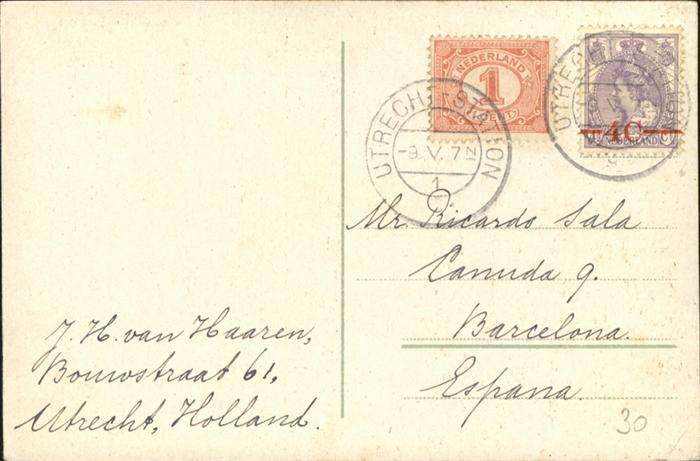 NEDERLAND
1
CENT
4C
NEDERLAND
UTRECHT STATION
-9.V.7N
1
UTREC
Mr. Ricardo Sala
Canuda 9.
Barcelona.
España.
J. H. van Haaren,
Bouwstraat 61,
Utrecht, Holland.
30